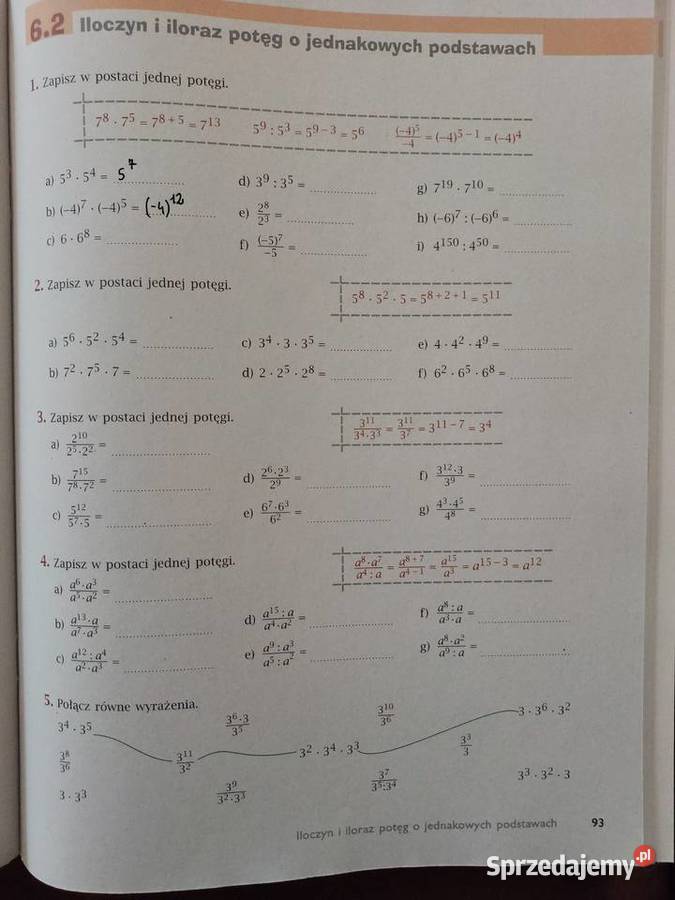 6.2 Iloczyn i iloraz potęg o jednakowych podstawach
1. Zapisz w postaci jednej potęgi.
7⁸ · 7⁵ = 7⁸⁺⁵ = 7¹³ 5⁹ : 5³ = 5⁹⁻³ = 5⁶ (−4)⁵/−4 = (−4)⁵⁻¹ = (−4)⁴
a) 5³ · 5⁴ = 5⁷ d) 3⁹ : 3⁵ = g) 7¹⁹ · 7¹⁰ =
b) (−4)⁷ · (−4)⁵ = (-4)¹² e) 2⁸/2³ = h) (−6)⁷ : (−6)⁶ =
c) 6 · 6⁸ = f) (−5)⁷/−5 = i) 4¹⁵⁰ : 4⁵⁰ =
2. Zapisz w postaci jednej potęgi.
5⁸ · 5² · 5 = 5⁸⁺²⁺¹ = 5¹¹
a) 5⁶ · 5² · 5⁴ = c) 3⁴ · 3 · 3⁵ = e) 4 · 4² · 4⁹ =
b) 7² · 7⁵ · 7 = d) 2 · 2⁵ · 2⁸ = f) 6² · 6⁵ · 6⁸ =
3. Zapisz w postaci jednej potęgi.
3¹¹/3⁴·3³ = 3¹¹/3⁷ = 3¹¹⁻⁷ = 3⁴
a) 2¹⁰/2⁵·2² =
b) 7¹⁵/7⁸·7² = d) 2⁶·2³/2⁹ = f) 3¹²·3/3⁹ =
c) 5¹²/5⁷·5 = e) 6⁷·6³/6² = g) 4³·4⁵/4⁸ =
4. Zapisz w postaci jednej potęgi.
a⁸·a⁷/a⁴:a = a⁸⁺⁷/a⁴⁻¹ = a¹⁵/a³ = a¹⁵⁻³ = a¹²
a) a⁶·a³/a⁵·a² =
b) a¹³·a/a⁷·a³ = d) a¹⁵:a/a⁴·a² = f) a⁸:a/a³·a =
c) a¹²:a⁴/a²·a³ = e) a⁹:a³/a⁵:a² = g) a⁸·a²/a⁹:a =
5. Połącz równe wyrażenia.
3⁴ · 3⁵ 3⁶·3/3⁵ 3¹⁰/3⁶ 3 · 3⁶ · 3²
3⁸/3⁶ 3¹¹/3² 3² · 3⁴ · 3³ 3³/3
3 · 3³ 3⁹/3²·3³ 3⁷/3⁵:3⁴ 3³ · 3² · 3
Iloczyn i iloraz potęg o jednakowych podstawach 93
Sprzedajemy.pl